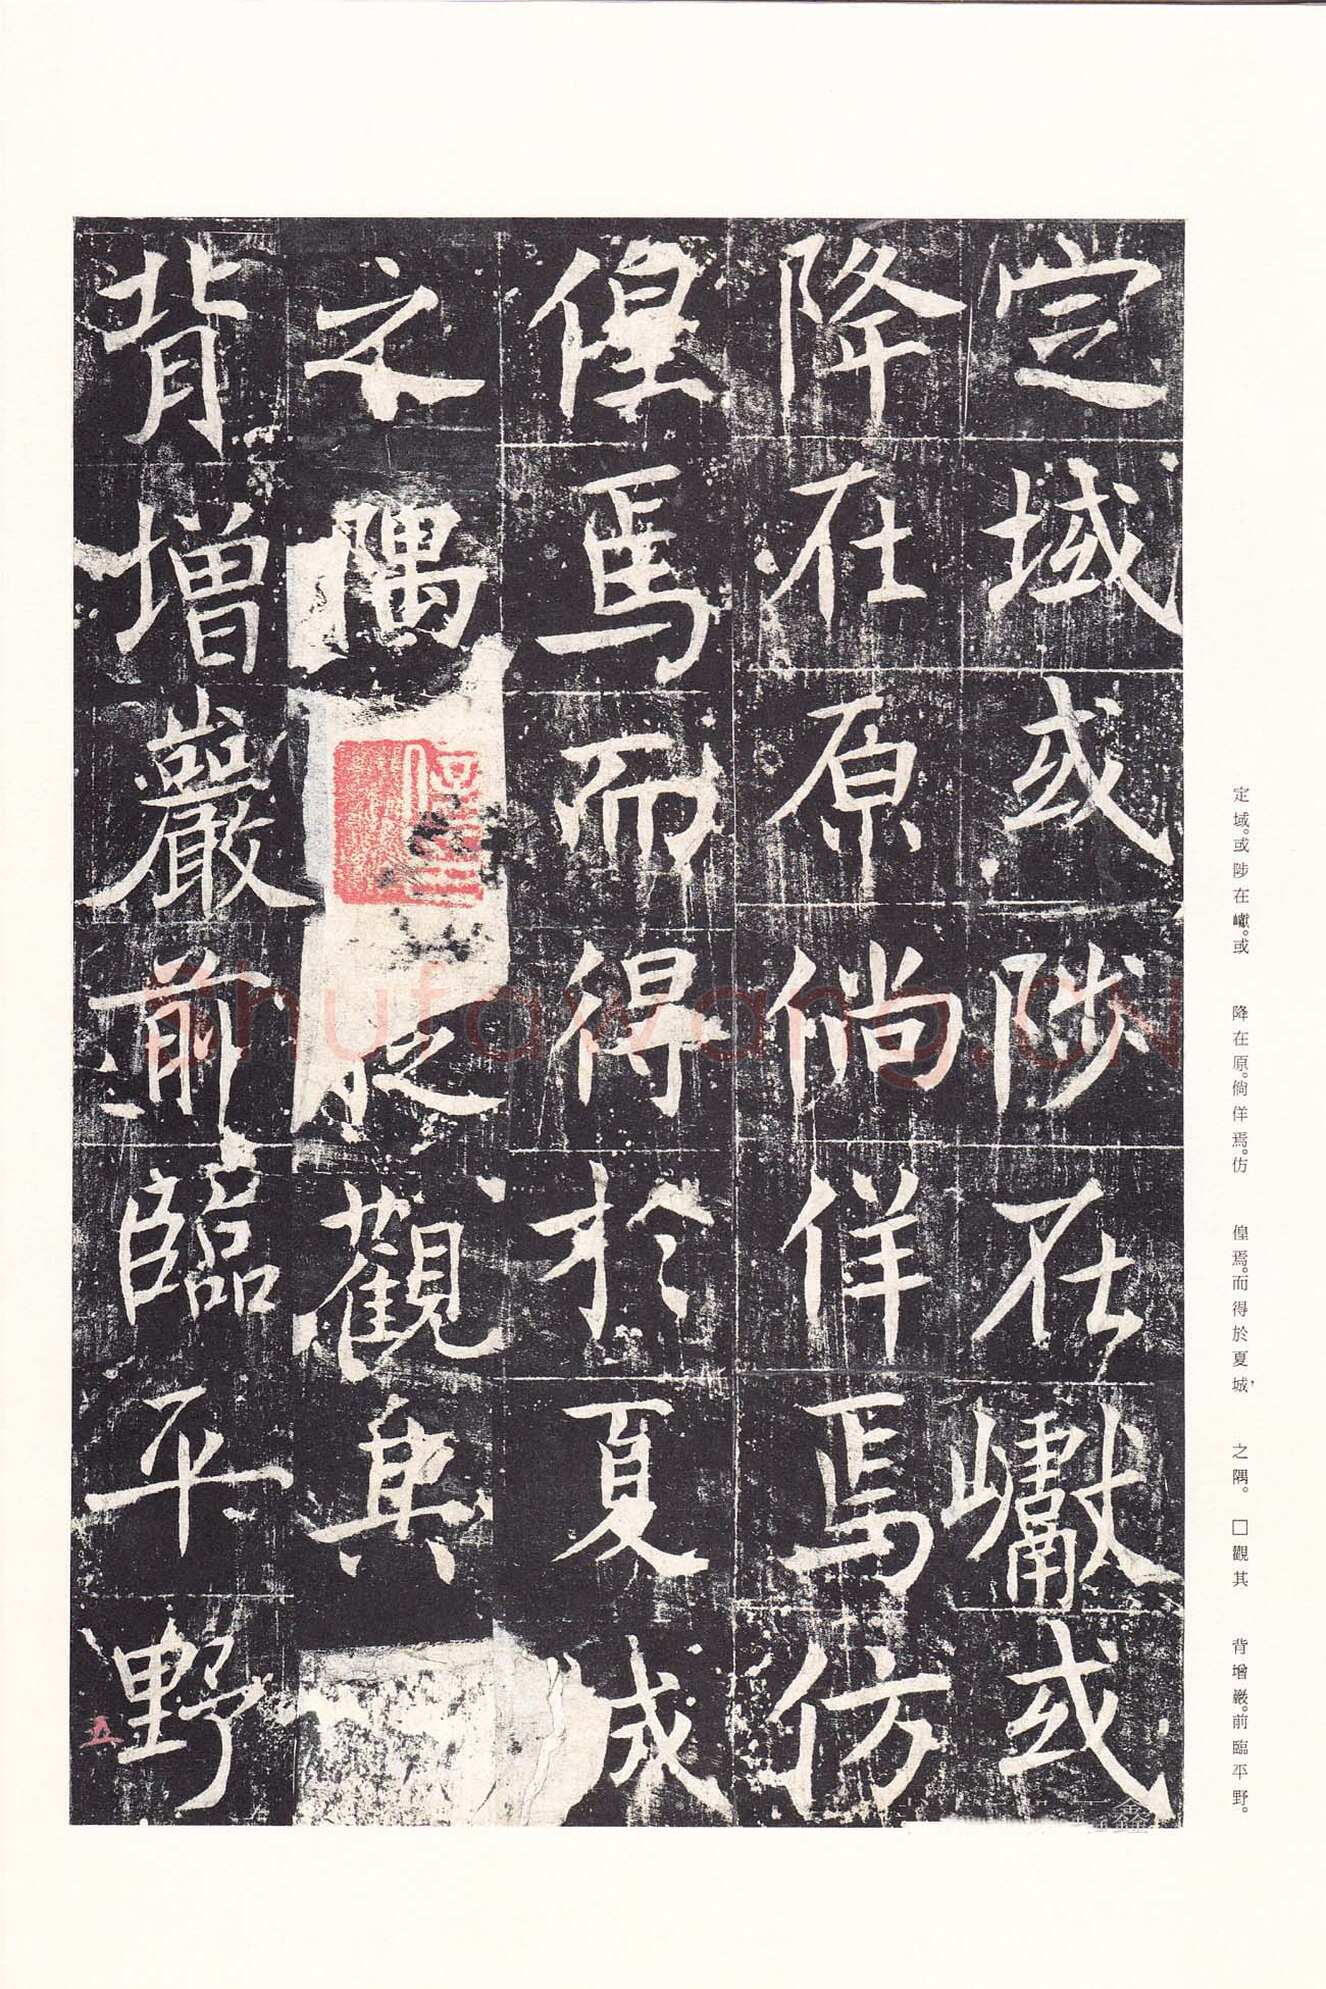 定域或陟在巘或
降在原倘佯焉仿
偟焉而得於夏城
之隅
觀其
背增嚴前臨平野
五
定域。或陟在巘。或
降在原。倘佯焉。仿
偟焉。而得於夏城，
之隅。□觀其
背增巖。前臨平野。
shufawang.cn